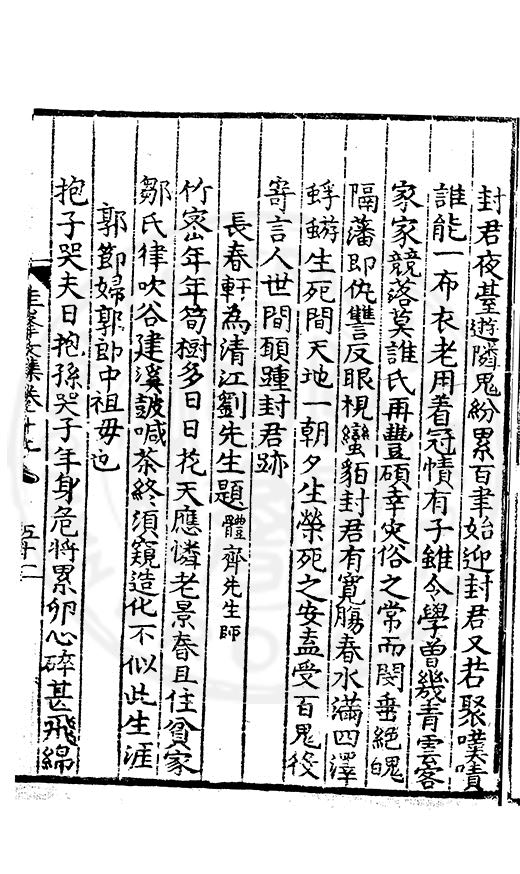 封君夜臺遊隣鬼紛累百聿始迎封君又若聚噗嘖
誰能一布衣老用着冠幘有子錐今學曾幾青雲客
家家競落莫誰氏再豐碩幸灾俗之常而閔垂絶魄
隔藩即仇讐反眼視蠻貊封君有寬膓春水滿四澤
蜉蝣生死間天地一朝夕生榮死之安盍受百鬼役
寄言人世間頋踵封君跡
長春軒為清江劉先生題體齊先生師
竹密年年筍樹多日日花天應憐老景春且住貧家
鄒氏律吹谷建溪皷喊茶終須窺造化不似此生涯
郭節婦郭郎中祖毋也
抱子哭夫日抱孫哭子年身危將累卯心碎甚飛綿
峯文集卷